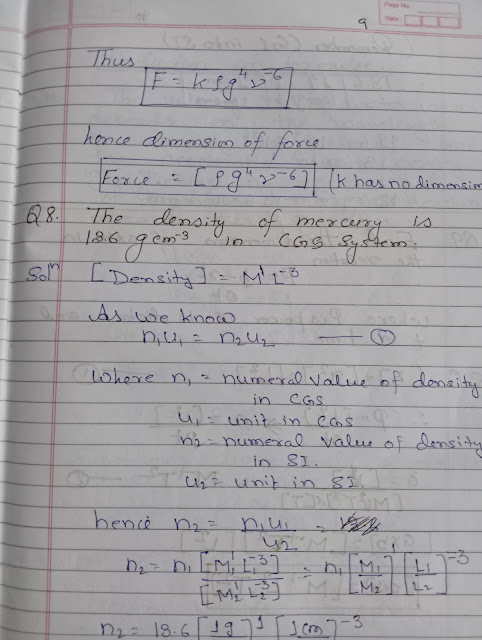 Page No.
Date
9
Thus
F = k ρ g⁴ ν⁻⁶
hence dimension of force
Force = [ρ g⁴ ν⁻⁶] (k has no dimension
Q8. The density of mercury is
13.6 g cm⁻³ in CGS System.
Solⁿ [Density] = M¹L⁻³
As we know
n₁u₁ = n₂u₂ — ①
where n₁ = numeral value of density
in CGS
u₁ = unit in CGS
n₂ = numeral value of density
in SI.
u₂ = unit in SI.
hence n₂ = n₁u₁/u₂ =
n₂ = n₁ [M₁¹ L₁⁻³]/[M₂¹ L₂⁻³] = n₁ [M₁/M₂]¹ [L₁/L₂]⁻³
n₂ = 13.6 [1g]¹ [1cm]⁻³